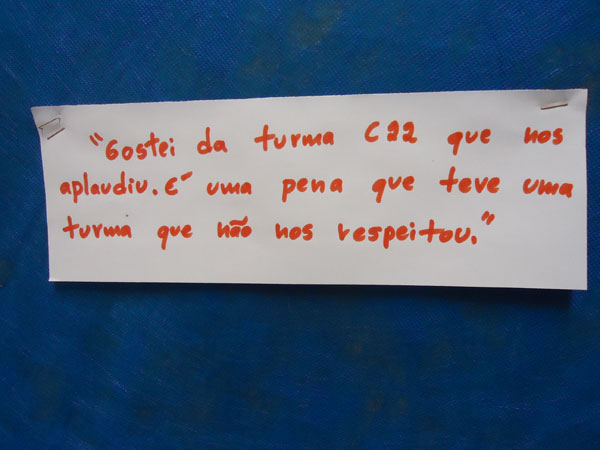 "Gostei da turma C22 que nos
aplaudiu. É uma pena que teve uma
turma que não nos respeitou."